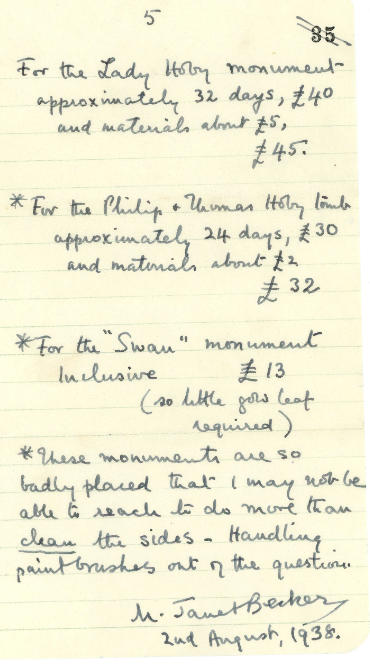 5
35
For the Lady Hoby monument
approximately 32 days, £40
and materials about £5,
£45.
* For the Philip + Thomas Hoby tomb
approximately 24 days, £30
and materials about £2
£32
* For the "Swan" monument
Inclusive £13
(so little gold leaf
required)
* These monuments are so
badly placed that I may not be
able to reach to do more than
clean the sides - Handling
paint brushes out of the question.
M. Janet Becker
2nd August, 1938.